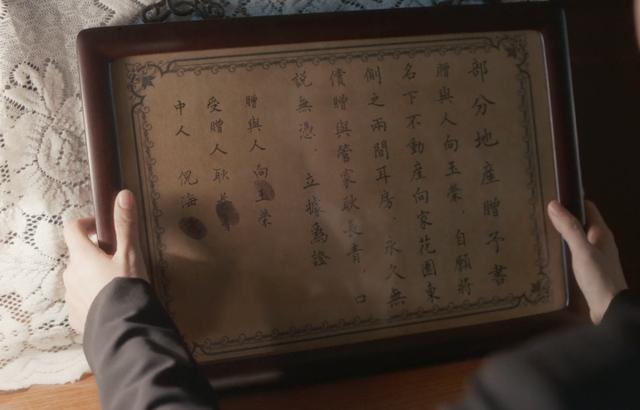 部分地產贈予書
贈與人向玉榮，自願將
名下不動產向家花園東
側之兩間耳房，永久無
償贈與管家耿長青，口
說無憑，立據為證
贈與人 向玉榮
受贈人 耿長
中人 倪海